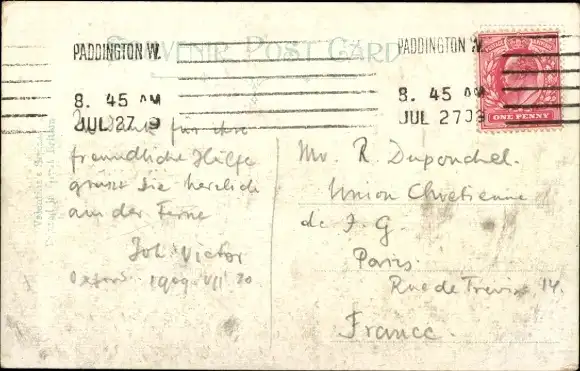 SOUVENIR POST CARD
PADDINGTON W.
8. 45 AM
JUL 27 09
PADDINGTON W.
8. 45 AM
JUL 27 09
ONE PENNY
für Ihre
freundliche Hilfe
grüsst Sie herzlich
aus der Ferne
Joh Victor
Oxford 1909 VII 20
Mr. R. Duponchel.
Union Chretienne
de J. G.
Paris
Rue de Trevise 14.
France.